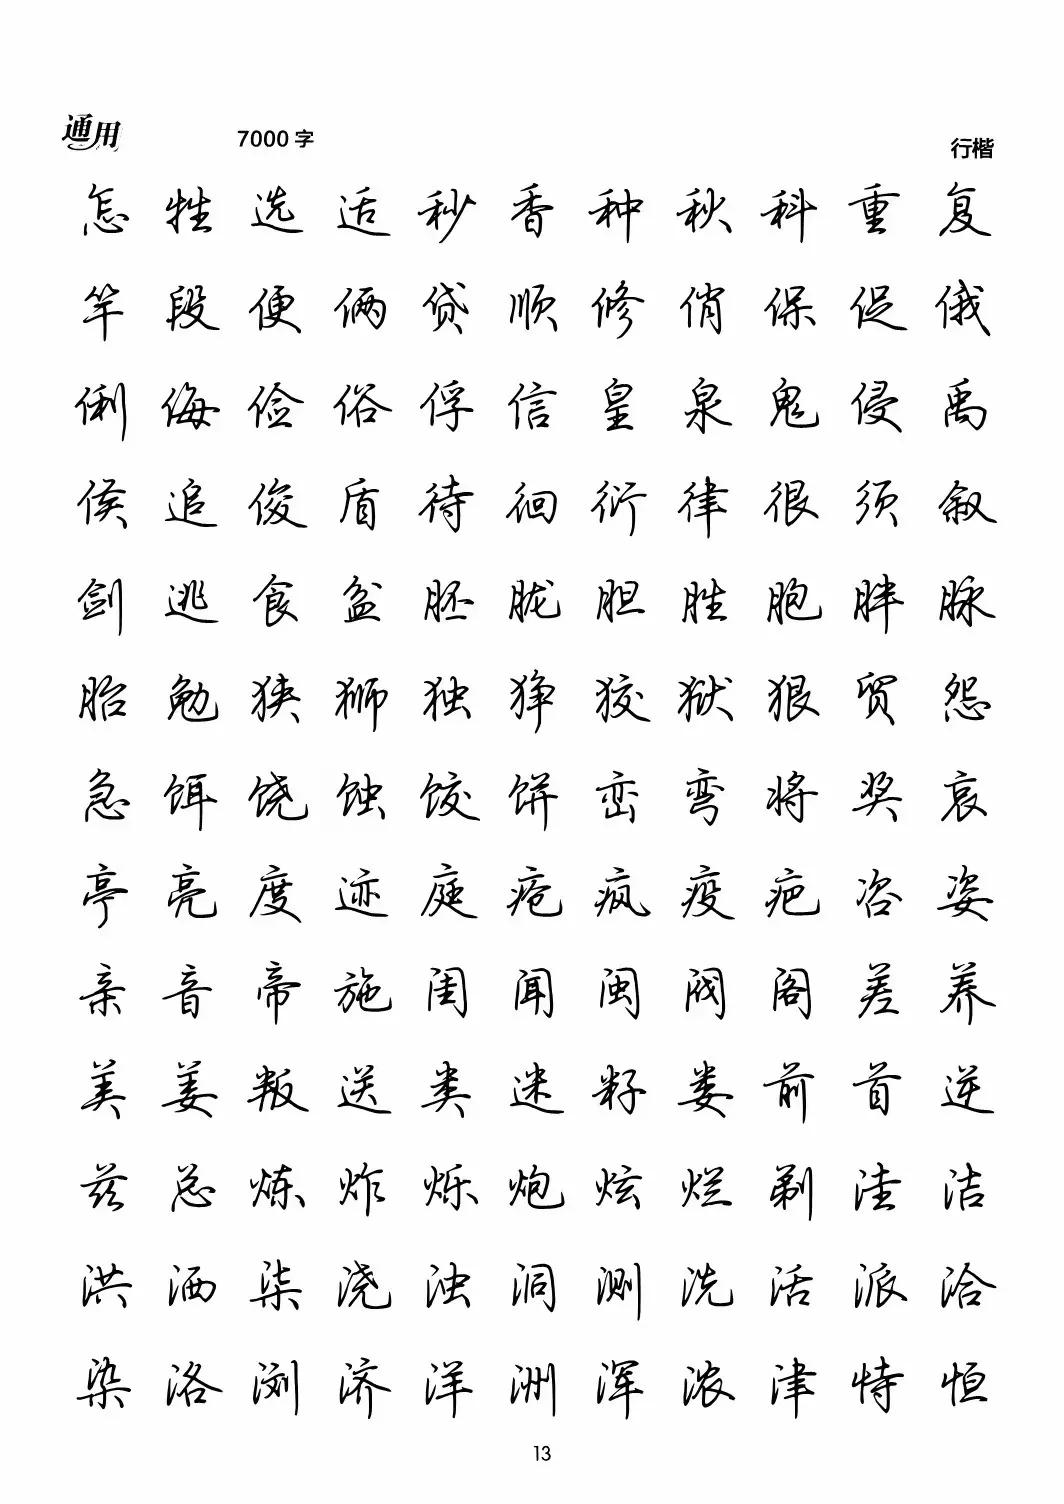 通用 7000 字 行楷
怎 牲 选 适 秒 香 种 秋 科 重 复
竿 段 便 俩 贷 顺 修 俏 保 促 俄
俐 侮 俭 俗 俘 信 皇 泉 鬼 侵 禹
侯 追 俊 盾 待 徊 衍 律 很 须 叙
剑 逃 食 盆 胚 胧 胆 胜 胞 胖 脉
胎 勉 狭 狮 独 狰 狡 狱 狠 贸 怨
急 饵 饶 蚀 饺 饼 峦 弯 将 奖 哀
亭 亮 度 迹 庭 疮 疯 疫 疤 咨 姿
亲 音 帝 施 闺 闻 闽 阀 阁 差 养
美 姜 叛 送 类 迷 籽 娄 前 首 逆
兹 总 炼 炸 烁 炮 炫 烂 剃 洼 洁
洪 洒 柒 浇 浊 洞 测 洗 活 派 洽
染 洛 浏 济 洋 洲 浑 浓 津 恃 恒
13